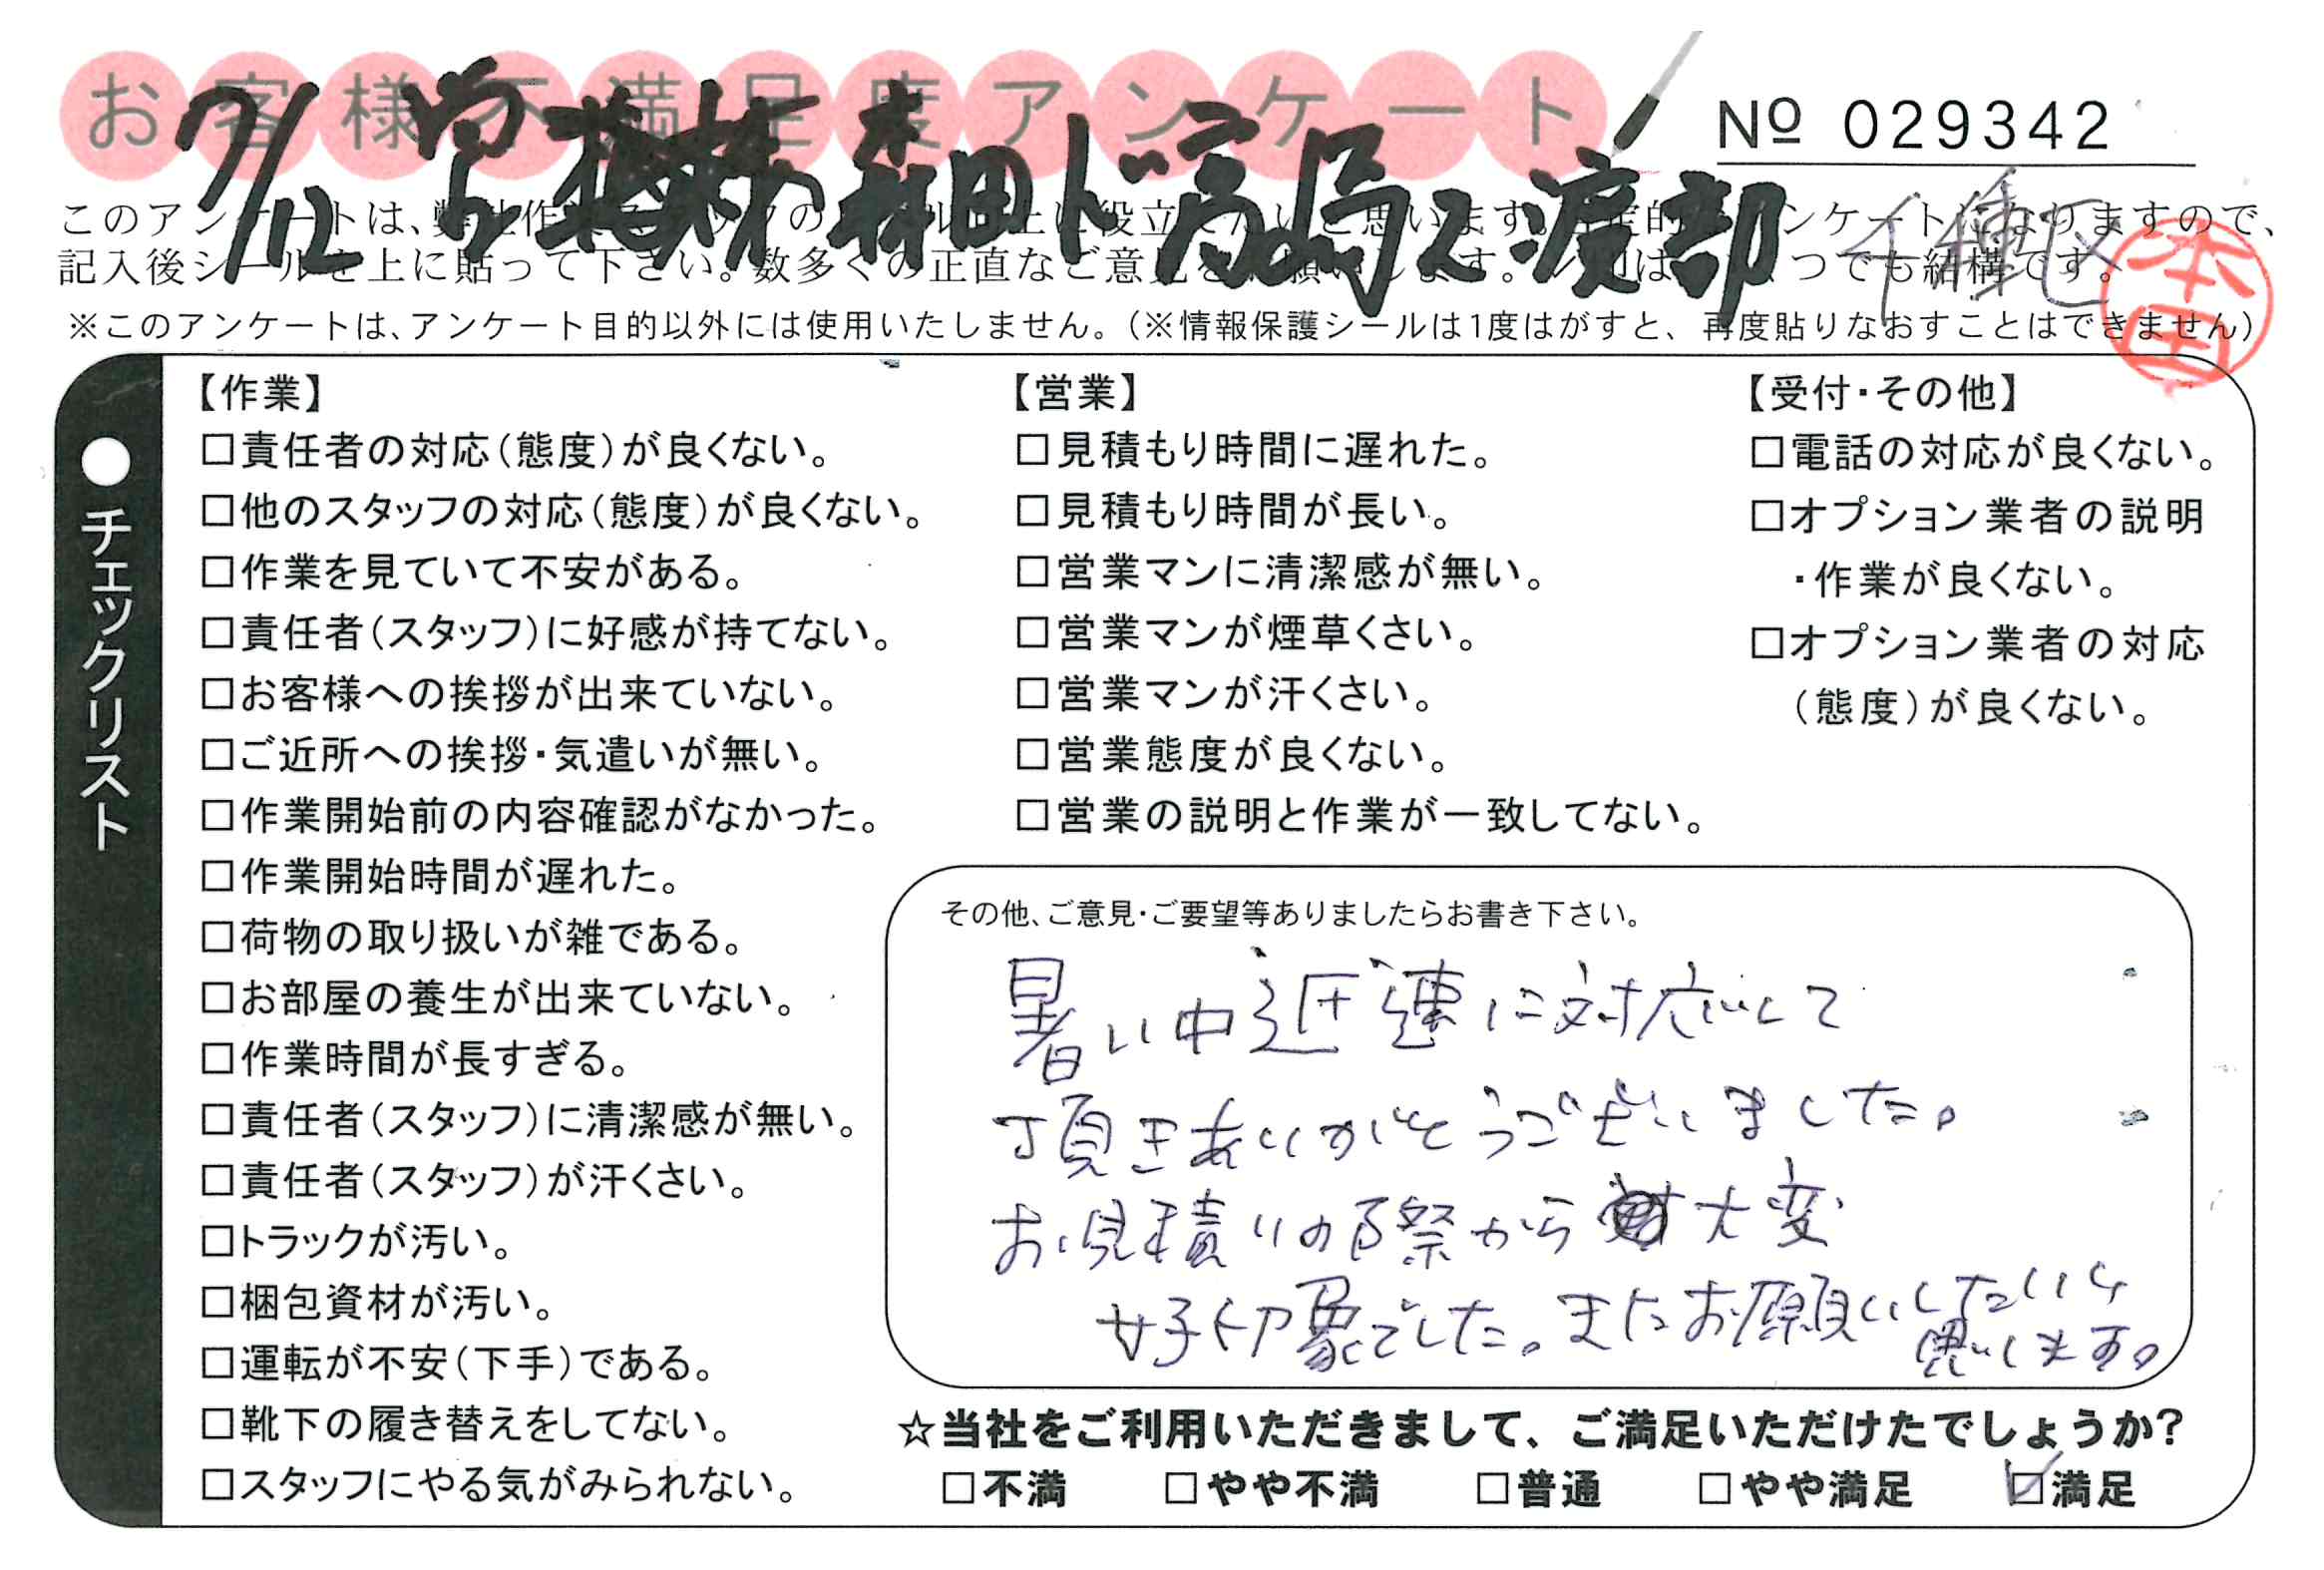 お客様不満足度アンケート
№ 029342
7/12 森田ド 高島2 渡部
千種区
本田
このアンケートは、
記入後シールを上に貼って下さい。数多くの正直なご意見を つでも結構です。
※このアンケートは、アンケート目的以外には使用いたしません。（※情報保護シールは1度はがすと、再度貼りなおすことはできません）
●チェックリスト
【作業】
□責任者の対応（態度）が良くない。
□他のスタッフの対応（態度）が良くない。
□作業を見ていて不安がある。
□責任者（スタッフ）に好感が持てない。
□お客様への挨拶が出来ていない。
□ご近所への挨拶・気遣いが無い。
□作業開始前の内容確認がなかった。
□作業開始時間が遅れた。
□荷物の取り扱いが雑である。
□お部屋の養生が出来ていない。
□作業時間が長すぎる。
□責任者（スタッフ）に清潔感が無い。
□責任者（スタッフ）が汗くさい。
□トラックが汚い。
□梱包資材が汚い。
□運転が不安（下手）である。
□靴下の履き替えをしてない。
□スタッフにやる気がみられない。
【営業】
□見積もり時間に遅れた。
□見積もり時間が長い。
□営業マンに清潔感が無い。
□営業マンが煙草くさい。
□営業マンが汗くさい。
□営業態度が良くない。
□営業の説明と作業が一致してない。
【受付・その他】
□電話の対応が良くない。
□オプション業者の説明
・作業が良くない。
□オプション業者の対応
（態度）が良くない。
その他、ご意見・ご要望等ありましたらお書き下さい。
暑い中迅速に対応して
頂きありがとうございました。
お見積りの際から大変
好印象でした。またお願いしたいと
思います。
☆当社をご利用いただきまして、ご満足いただけたでしょうか?
□不満 □やや不満 □普通 □やや満足 ☑満足